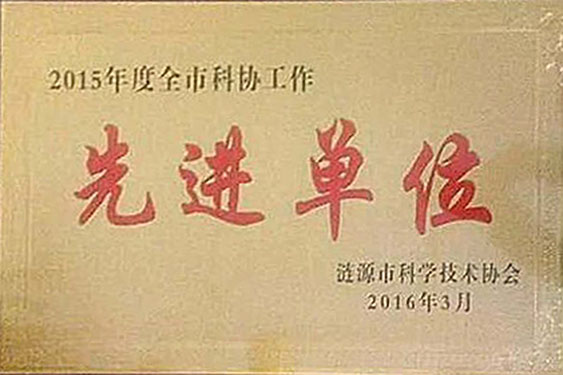 2015年度全市科协工作
先进单位
涟源市科学技术协会
2016年3月